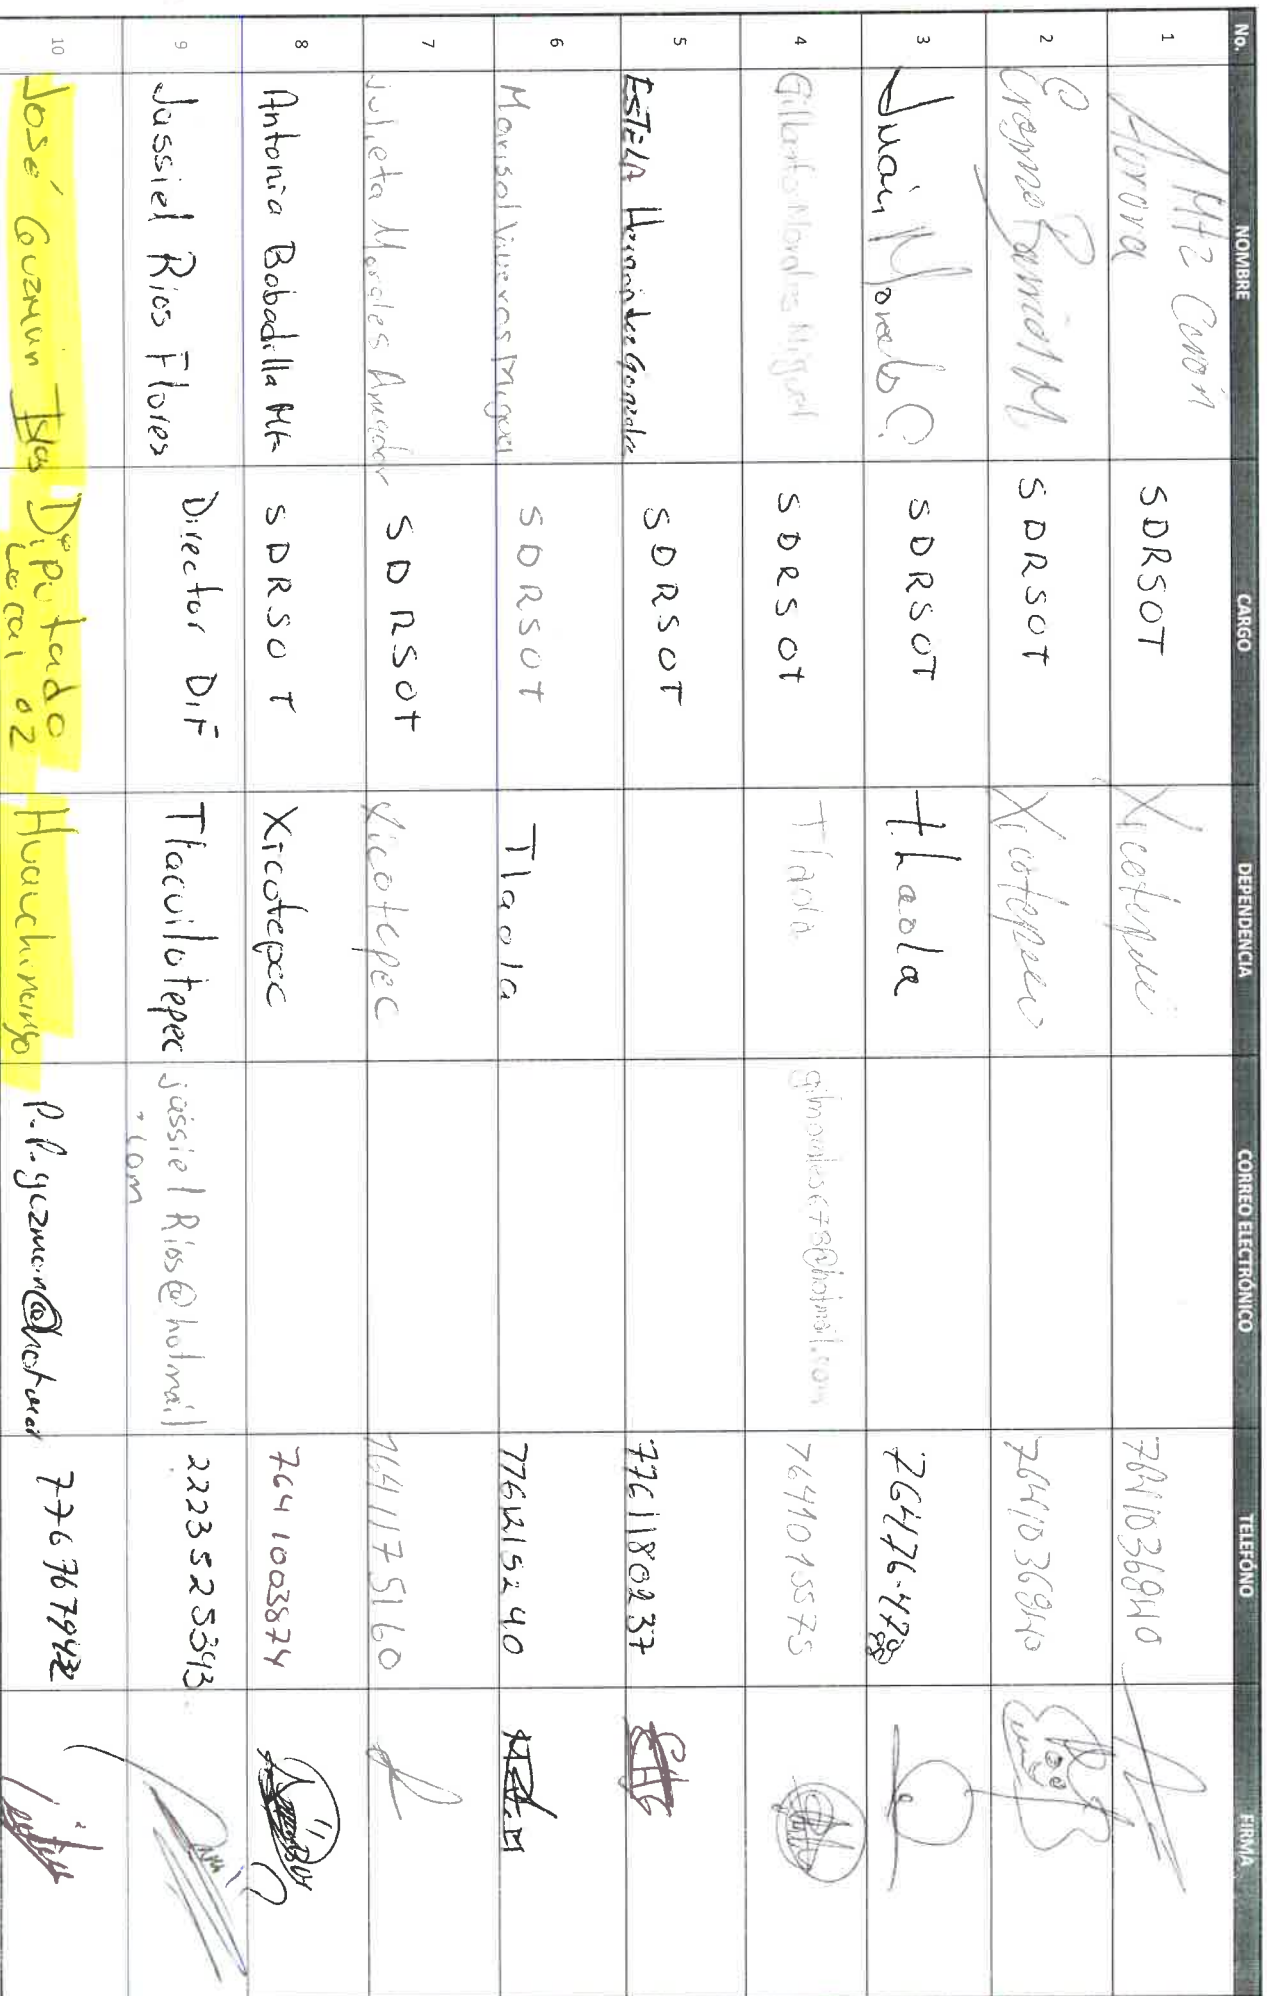 No. NOMBRE CARGO DEPENDENCIA CORREO ELECTRÓNICO TELEFÓNO FIRMA
1 Aurora Mtz SDRSOT Xicotepec 7641036840
2 SDRSOT Xicotepec 7641036840
3 Juan Morales C. SDRSOT tlaola 76476-47
4 Gilberto Morales Miguel SDRSOT Tlaola gilmorales678@hotmail.com
5 ESTELA Hernández González SDRSOT 7761180237
6 Marisol Viveros Miguel SDRSOT Tlaola 7761215240
7 Julieta Morales Amador SDRSOT Xicotepec 7641175160
8 Antonia Bobadilla Mtz SDRSOT Xicotepec 7641003874
9 Jassiel Rios Flores Director DIF Tlacuilotepec jassielRios@hotmail
.com
2223525393
10 José Guzmán Islas Diputado
Local 02
Huauchinango P.P.guzman@hotmail